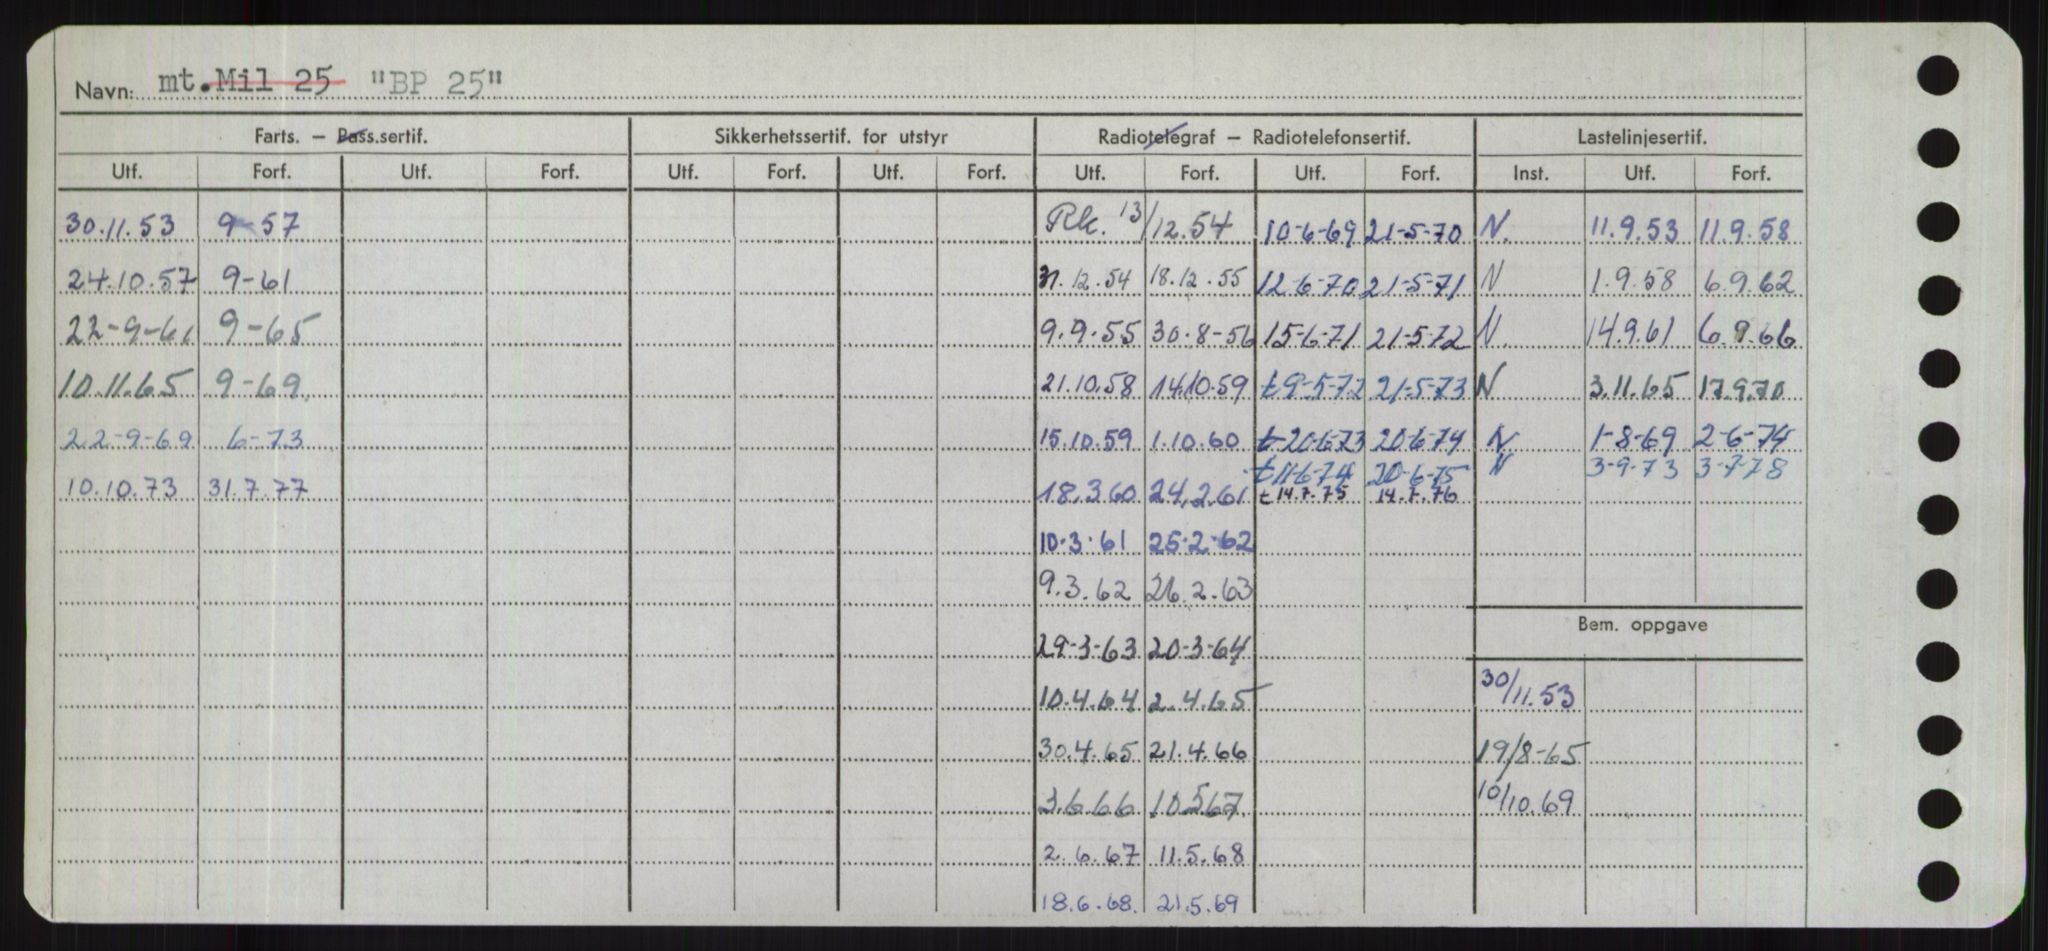 Navn: mt. Mil 25 "BP 25"
Farts. – Pass.sertif. Sikkerhetssertif. for utstyr Radiotelegraf – Radiotelefonsertif. Lastelinjesertif.
Utf. Forf. Utf. Forf. Utf. Forf. Utf. Forf. Utf. Forf. Utf. Forf. Inst. Utf. Forf.
30.11.53 9-57 Rk. 13/12.54 10-6-69 21-5-70 N. 11.9.53 11.9.58
24.10.57 9-61 31.12.54 18.12.55 12-6-70 21-5-71 N 1.9.58 6.9.62
22-9-61 9-65 9.9.55 30.8-56 15-6-71 21-5-72 N. 14.9.61 6.9.66
10.11.65 9-69 21.10.58 14.10.59 t 9-5-72 21-5-73 N 3.11.65 17.9.70
22-9-69 6-73 15.10.59 1.10.60 t-20-6-73 20-6-74 N 1-8-69 2-6-74
t 11-6-74 20-6-75 N 3-9-73 3-7-78
10.10.73 31.7.77 18.3.60 24.2.61 t 14.7.75 14.7.76
10.3.61 25.2.62
9.3.62 26.2.63
Bem. oppgave
29-3-63 20-3-64
10.4.64 2.4.65 30/11.53
30.4.65 21.4.66 19/8-65
3.6.66 10.5.67 10/10.69
2.6.67 11.5.68
18.6.68. 21.5.69